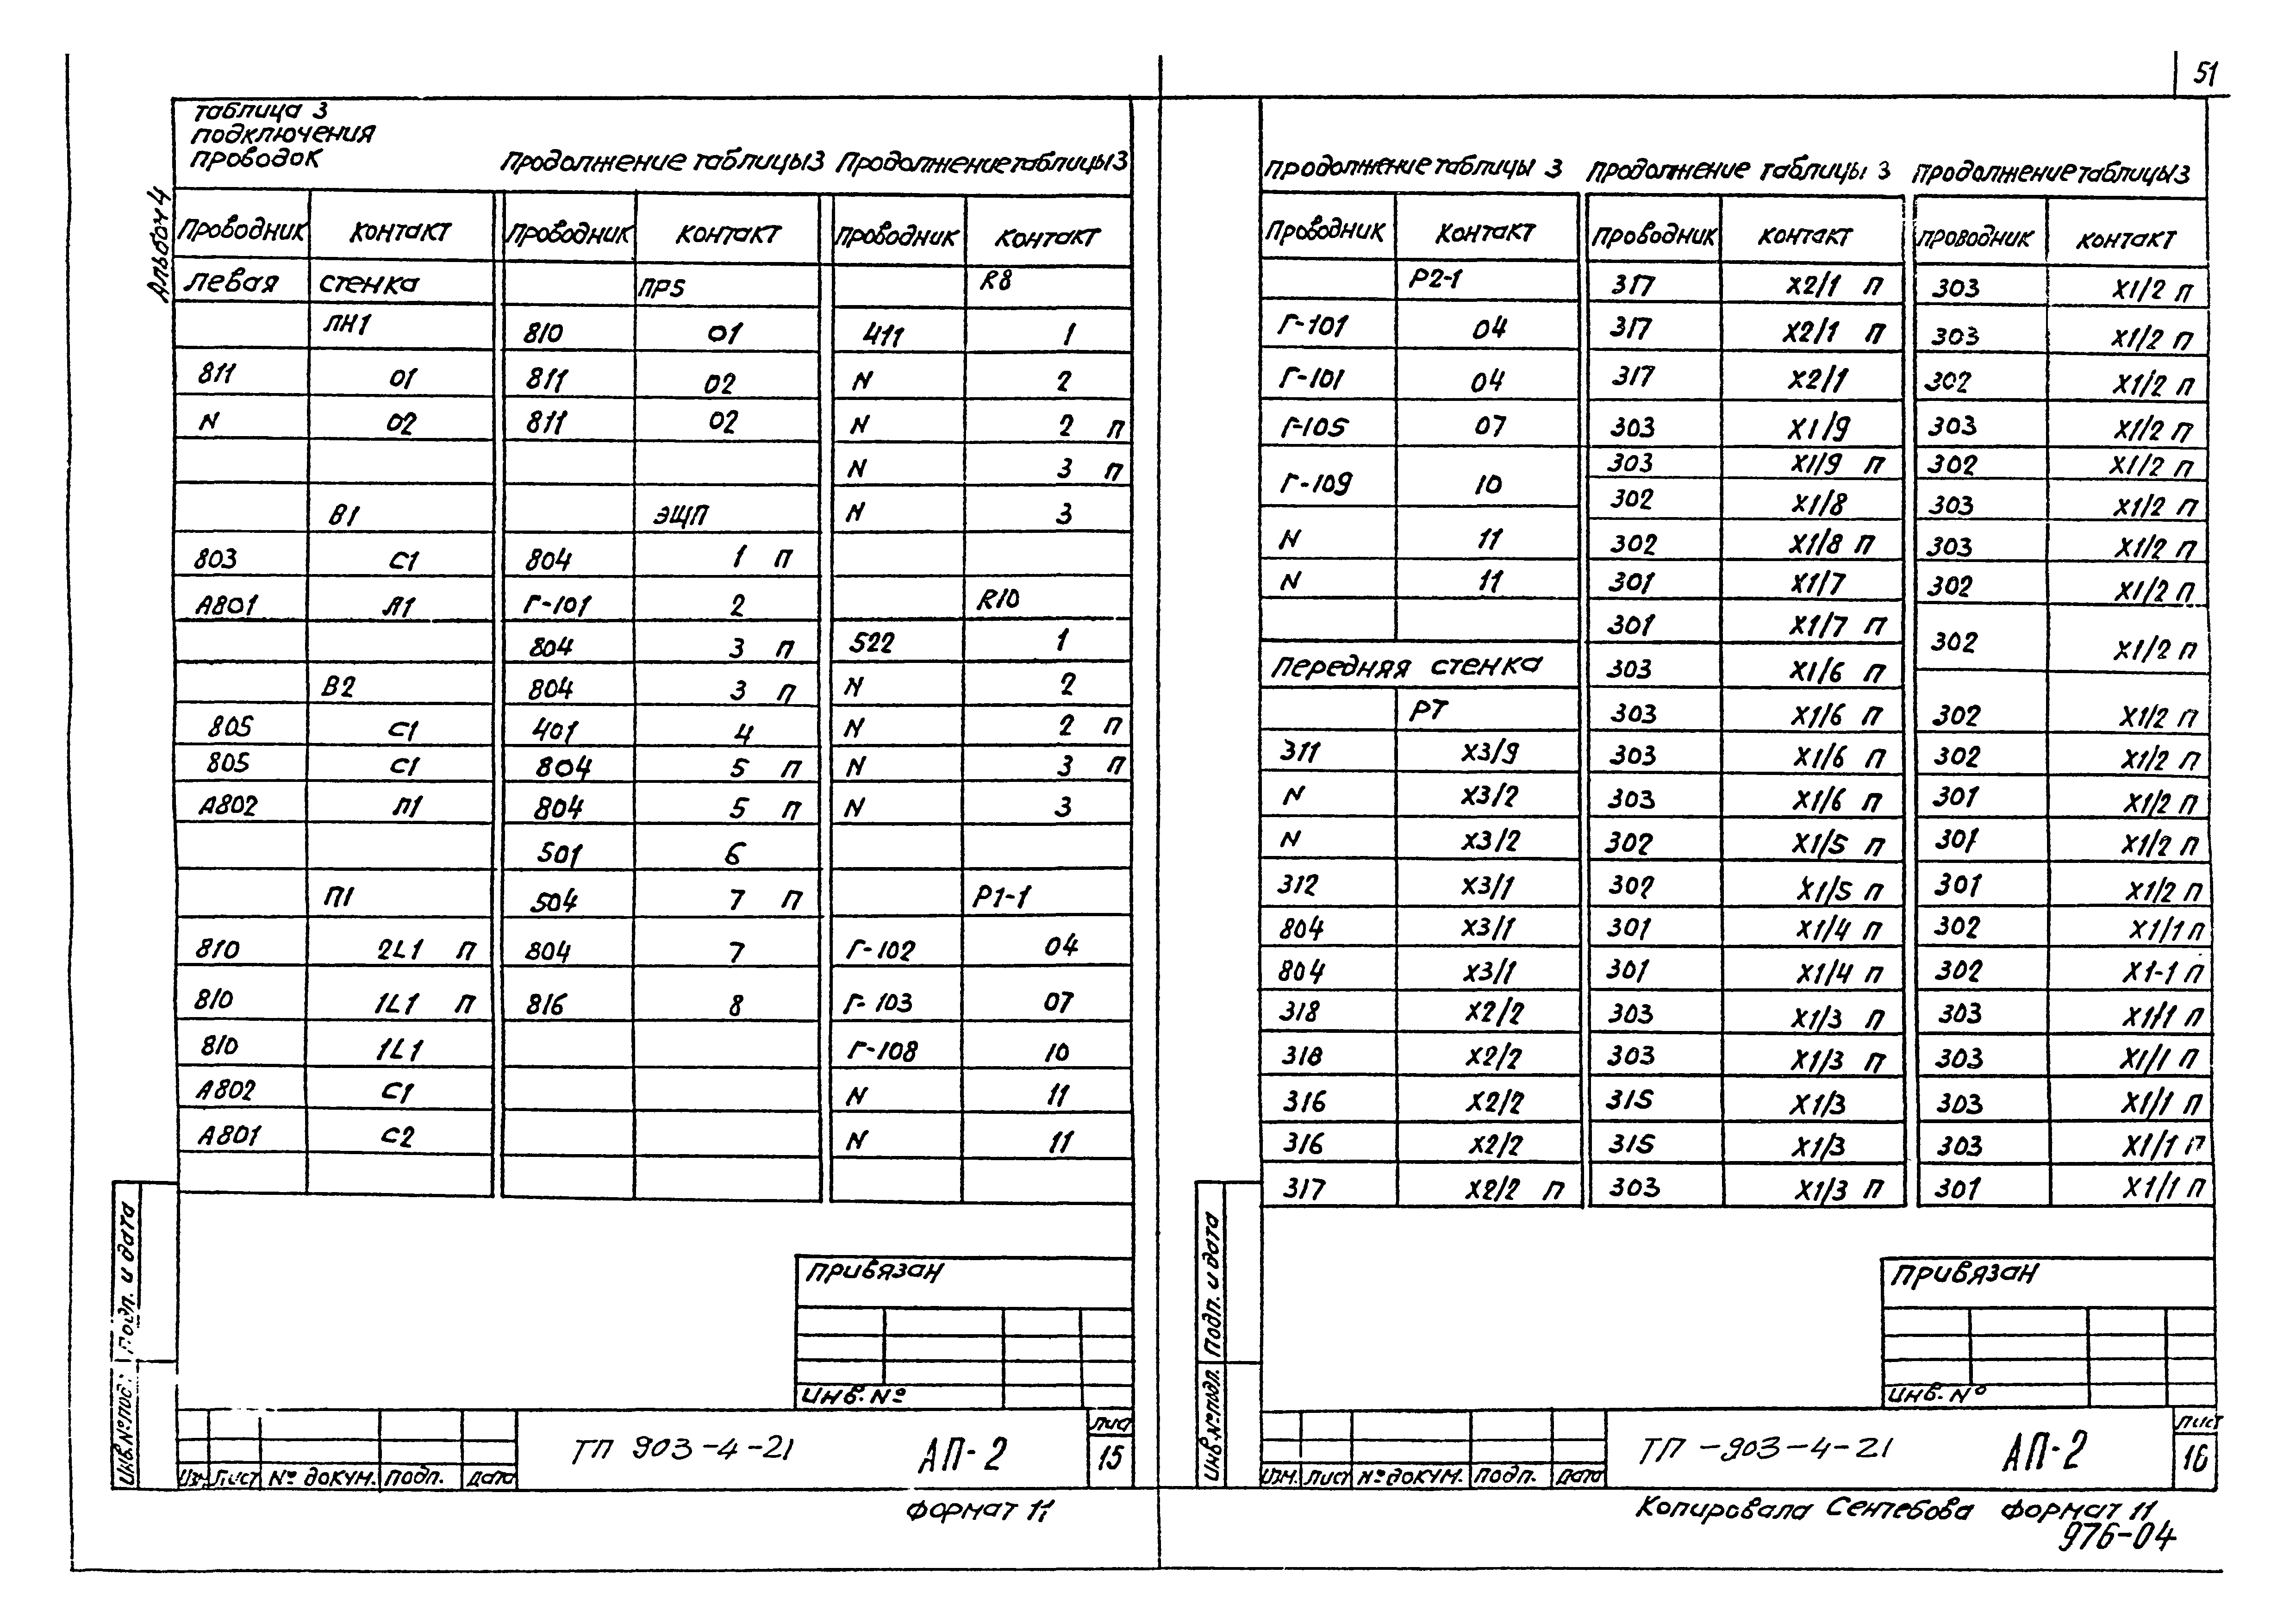 51
Альбом 4
таблица 3
подключения
проводок
Продолжение таблицы 3
Проводник контакт
левая стенка
ЛН1
811 01
N 02
В1
803 С1
А801 Л1
В2
805 С1
805 С1
А802 Л1
П1
810 2L1 П
810 1L1 П
810 1L1
А802 С1
А801 С2
Проводник контакт
ПР5
810 01
811 02
811 02
ЭЩП
804 1 П
Г-101 2
804 3 П
804 3 П
401 4
804 5 П
804 5 П
501 6
504 7 П
804 7
816 8
Продолжение таблицы 3
Проводник контакт
R8
411 1
N 2
N 2 П
N 3 П
N 3
R10
522 1
N 2
N 2 П
N 3 П
N 3
Р1-1
Г-102 04
Г-103 07
Г-108 10
N 11
N 11
Привязан
ИНВ. №
Изм. Лист № докум. Подп. Дата
ТП 903-4-21 АП-2
Лис
15
Инв. № под. Подп. и дата
Формат 11
Продолжение таблицы 3
Проводник контакт
Р2-1
Г-101 04
Г-101 04
Г-105 07
Г-109 10
N 11
N 11
Передняя стенка
РТ
311 Х3/9
N Х3/2
N Х3/2
312 Х3/1
804 Х3/1
804 Х3/1
318 Х2/2
318 Х2/2
316 Х2/2
316 Х2/2
317 Х2/2 П
Продолжение таблицы 3
Проводник контакт
317 Х2/1 П
317 Х2/1 П
317 Х2/1
303 Х1/9
303 Х1/9 П
302 Х1/8
302 Х1/8 П
301 Х1/7
301 Х1/7 П
303 Х1/6 П
303 Х1/6 П
303 Х1/6 П
303 Х1/6 П
302 Х1/5 П
302 Х1/5 П
301 Х1/4 П
301 Х1/4 П
303 Х1/3 П
303 Х1/3 П
315 Х1/3
315 Х1/3
303 Х1/3 П
Продолжение таблицы 3
Проводник контакт
303 Х1/2 П
303 Х1/2 П
302 Х1/2 П
303 Х1/2 П
302 Х1/2 П
303 Х1/2 П
303 Х1/2 П
302 Х1/2 П
302 Х1/2 П
302 Х1/2 П
302 Х1/2 П
301 Х1/2 П
301 Х1/2 П
301 Х1/2 П
302 Х1/1 П
302 Х1-1 П
303 Х1/1 П
303 Х1/1 П
303 Х1/1 П
303 Х1/1 П
301 Х1/1 П
Привязан
ИНВ. №
Изм. Лист № докум. Подп. Дата
ТП -903-4-21 АП-2
Лист
16
Инв. № подл. Подп. и дата
Копировала Сентебова Формат 11
976-04